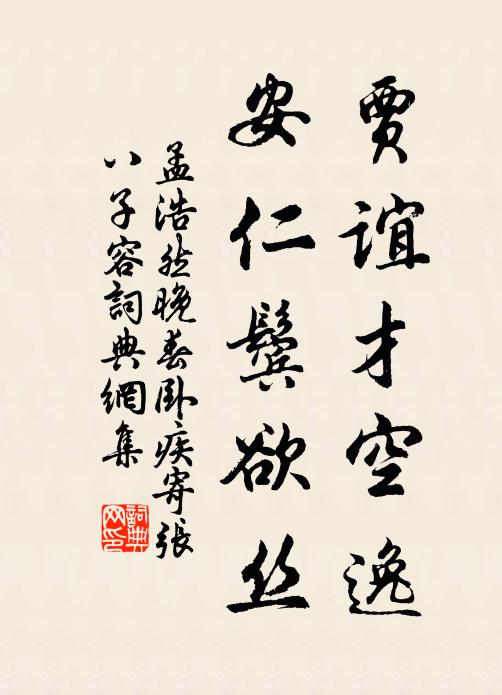 賈誼才空逸
安仁鬢欲丝
孟浩然晚春卧疾寄張
八子容詞典網集
詞典
网印